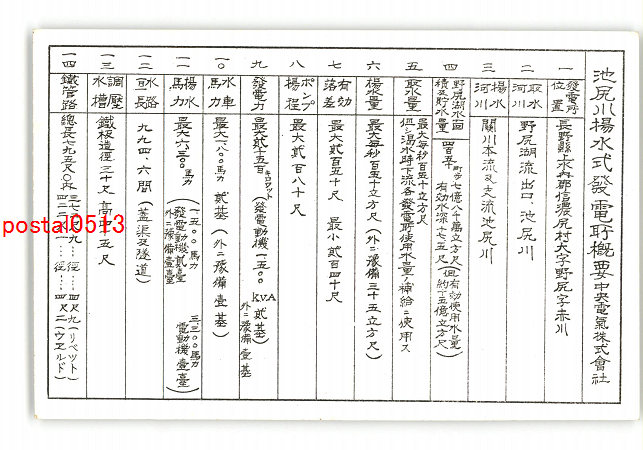 池尻川揚水式發電所概要 中央電氣株式會社
一 發電所位置 長野縣上水内郡信濃尻村大字野尻字赤川
二 取水河川 野尻湖流出口 池尻川
三 揚水河川 關川本流及支流池尻川
四 野尻湖水面積及貯水量 四百五十町歩 七億八千萬立方尺(但有効使用水量)
有効水深七五尺 約五億立方尺
五 取水量 最大毎秒百五十立方尺
但シ渇水時下流各發電所使用水量ノ補給ニ使用ス
六 揚水量 最大毎秒百五十立方尺(外ニ豫備三十五立方尺)
七 有効落差 最大貳百五十尺 最小貳百四十尺
八 ポンプ揚程 最大貳百八十尺
九 發電力 最大貳千五百キロワット(發電動機一五〇〇kVA貳基)
外ニ豫備壹基
一〇 水車馬力 最大一八〇〇馬力 貳基(外ニ豫備壹基)
一一 揚水馬力 最大六三〇〇馬力
(一五〇〇馬力 發電動機貳臺 外ニ豫備壹臺)
三三〇〇馬力 電動機壹臺
一二 水路亘長 九九四.六間(蓋渠及隧道)
一三 調壓水槽 鐵板造徑三十尺 高四十五尺
一四 鐵管路 總長七九五尺〇内
postal0513